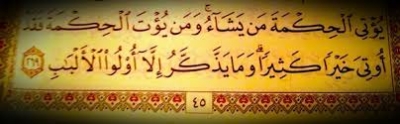 يُؤْتِي الْحِكْمَةَ مَن يَشَاءُ ۚ وَمَن يُؤْتَ الْحِكْمَةَ فَقَدْ
أُوتِيَ خَيْرًا كَثِيرًا ۗ وَمَا يَذَّكَّرُ إِلَّا أُولُوا الْأَلْبَابِ ٢٦٩
٤٥